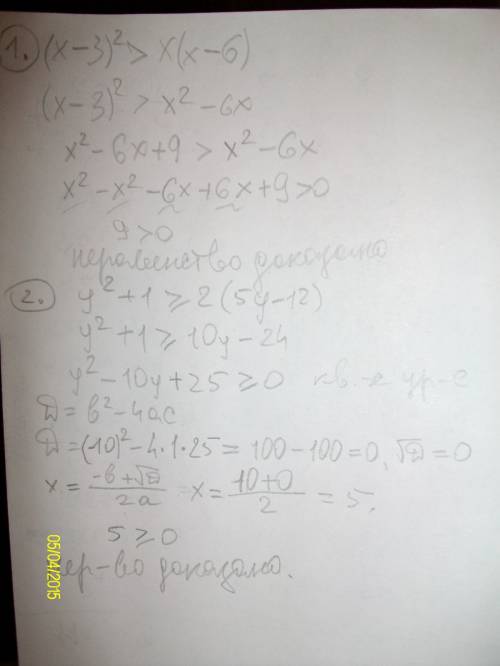 1. (x-3)² > x(x-6)
(x-3)² > x²-6x
x²-6x+9 > x²-6x
x²-x²-6x+6x+9>0
9>0
неравенство доказано
2. y²+1 ≥ 2(5y-12)
y²+1 ≥ 10y-24
y²-10y+25 ≥ 0 кв. ур-е
D = b²-4ac
D=(10)²-4·1·25 = 100-100=0, √D=0
x = (-b+√D)/2a x = (10+0)/2 = 5.
5 ≥ 0
нер-во доказано.
05/04/2015